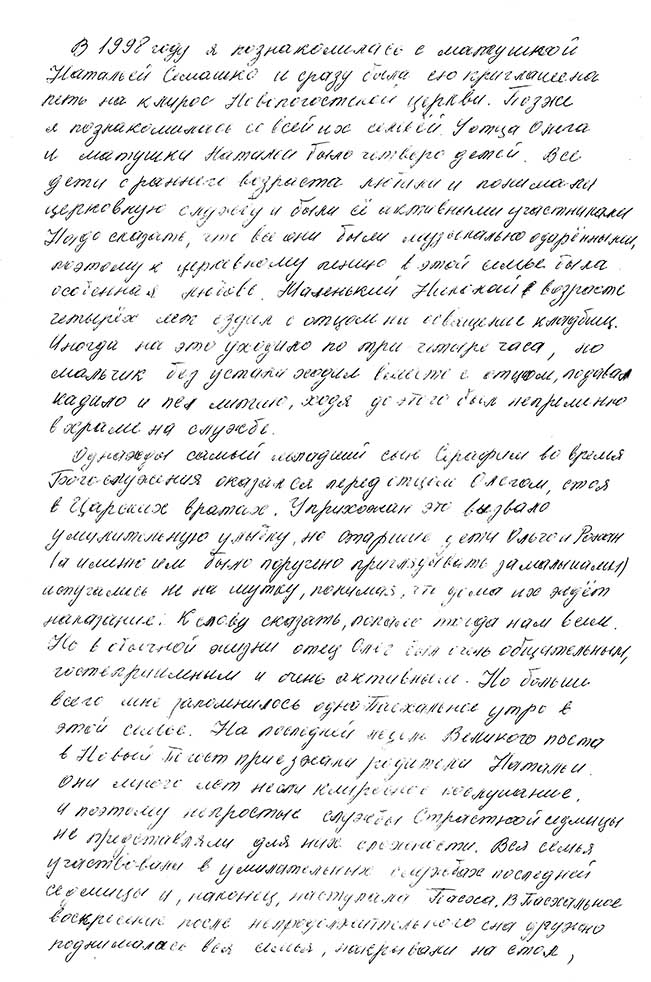 В 1998 году я познакомилась с матушкой
Натальей Семашко и сразу была ею приглашена
петь на клирос Новопогостской церкви. Позже
я познакомилась со всей их семьёй. У отца Олега
и матушки Натальи было четверо детей. Все
дети с раннего возраста любили и понимали
церковную службу и были её активными участниками
Надо сказать, что все они были музыкально одарёнными,
поэтому к церковному пению в этой семье была
особенная любовь. Маленький Николай в возрасте
четырёх лет ездил с отцом на освящение кладбищ.
Иногда на это уходило по три-четыре часа, но
мальчик без устали ходил вместе с отцом, подавал
кадило и пел литию, хотя до этого был непременно
в храме на службе.
Однажды самый младший сын Серафим во время
Богослужения оказался перед отцом Олегом, стоя
в Царских вратах. У прихожан это вызвало
умилительную улыбку, но старшие дети Ольга и Роман
(а именно им было поручено приглядывать за малышами)
испугались не на шутку, понимая, что дома их ждёт
наказание. К слову сказать, попало тогда нам всем.
Но в обычной жизни отец Олег был очень общительным,
гостеприимным и очень активным. Но больше
всего мне запомнилось одно Пасхальное утро в
этой семье. На последней неделе Великого поста
в Новый Погост приезжали родители Натальи.
Они много лет несли клиросное послушание,
и поэтому непростые службы Страстной седмицы
не представляли для них сложности. Вся семья
участвовала в умилительных службах последней
седмицы и, наконец, наступала Пасха. В Пасхальное
воскресение после непродолжительного сна дружно
поднималась вся семья, накрывали на стол,